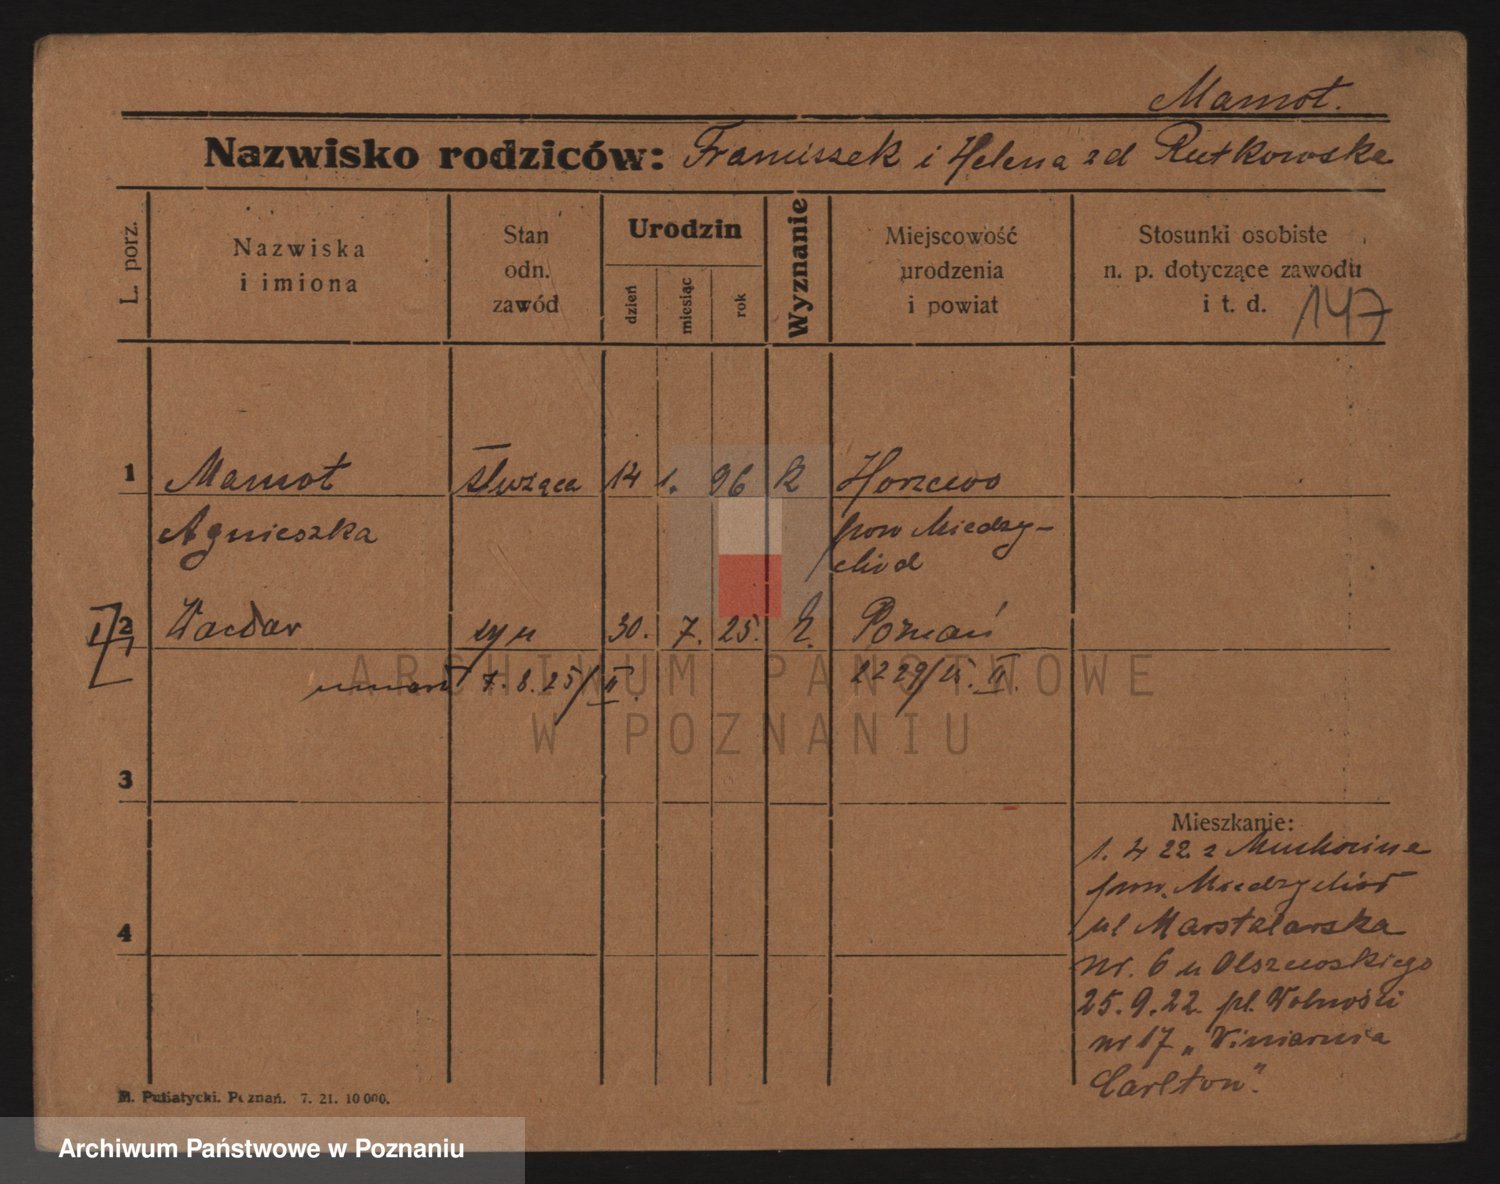 Mamot.
Nazwisko rodziców: Franciszek i Helena zd Rutkowska
L. porz.
Nazwiska
i imiona
Stan
odn.
zawód
Urodzin
dzień
miesiąc
rok
Wyznanie
Miejscowość
urodzenia
i powiat
Stosunki osobiste
n. p. dotyczące zawodu
i t. d.
147
1 Mamot służąca 14 1. 96 k Horzewo
Agnieszka pow Miedzy-
chod
2 Wacław syn 30. 7. 25. k. Poznań
umarł 7.8.25/II. 2229/25. II.
ARCHIWUM PAŃSTWOWE
W POZNANIU
3
Mieszkanie:
1. 4 22 z Muchocina
pow. Miedzychód
4
ul Marstalarska
nr. 6 u Olszewskiego
25.9.22. pl. Wolności
nr 17 „Winiarnia
Carlton".
M. Putiatycki. Poznań. 7. 21. 10 000.
Archiwum Państwowe w Poznaniu